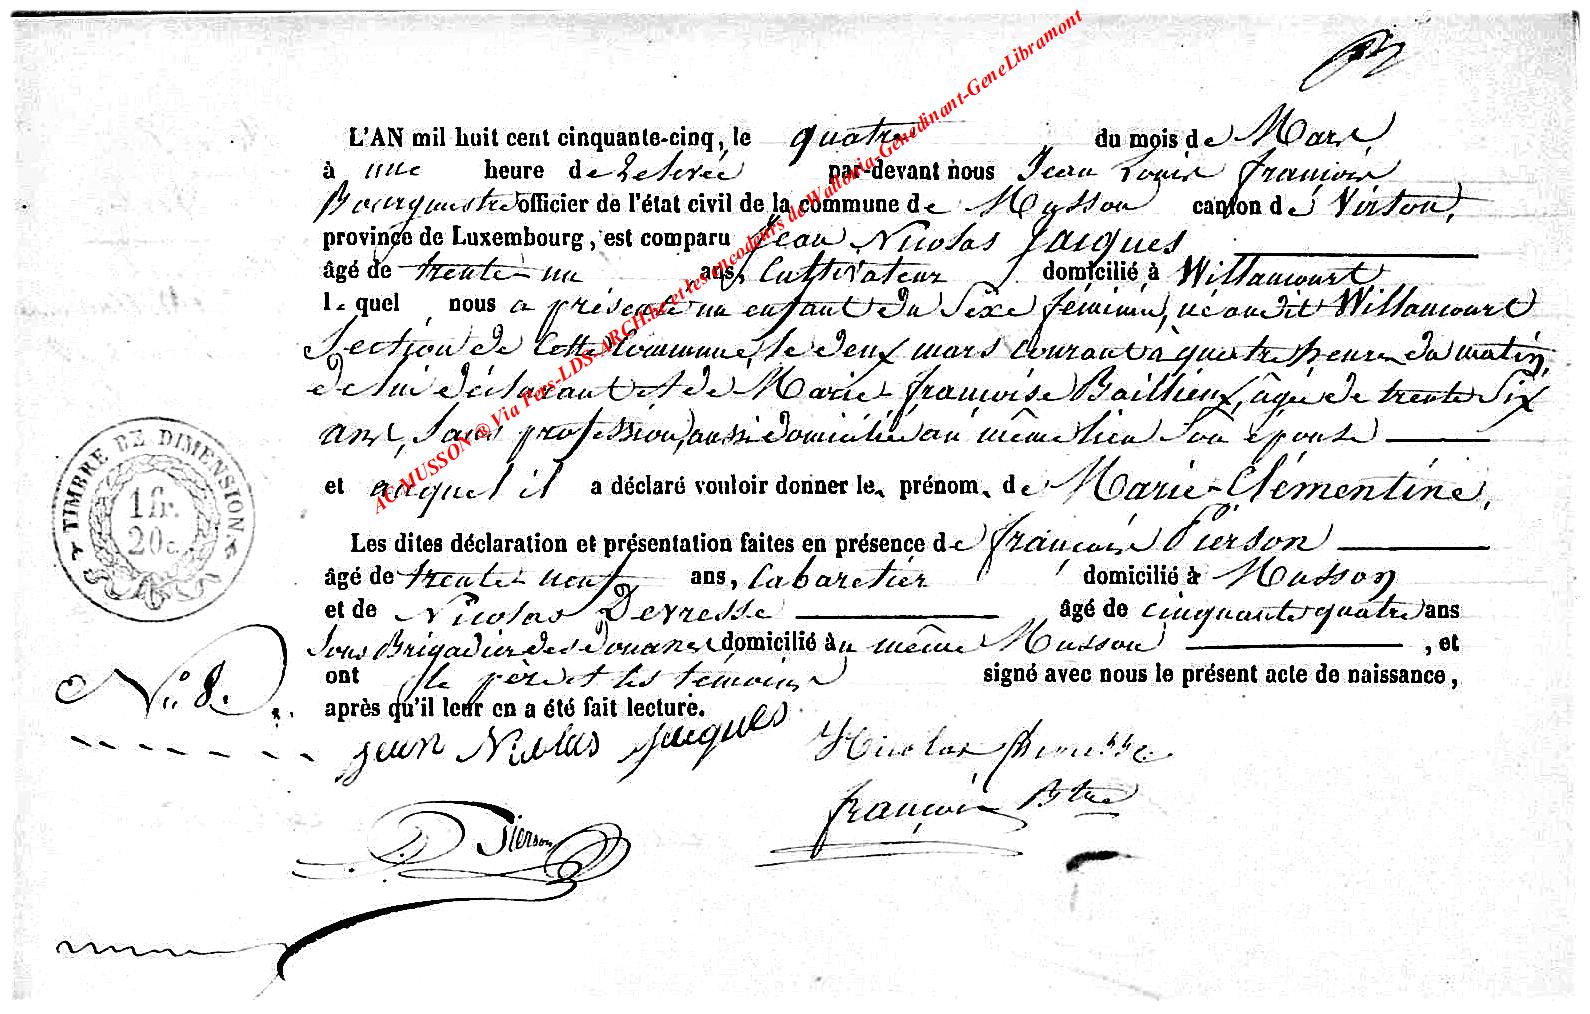 L'AN mil huit cent cinquante-cinq, le quatre du mois de Mars
à une heure de relevée par-devant nous Jean Louis françois
Bourgmestre officier de l'état civil de la commune de Musson canton de Virton,
province de Luxembourg, est comparu Jean Nicolas Jacques
âgé de trente-un ans, Cultivateur domicilié à Willancourt
le quel nous a présenté un enfant du Sexe féminin, né au dit Willancourt
Section de Cette Commune, le deux mars courant à quatre heures du matin,
de lui déclarant et de Marie françoise Baillieux, âgée de trente Six
ans, Sans profession, aussi domiciliée au même lieu Son épouse
et auquel il a déclaré vouloir donner le prénom de Marie-Clémentine.
Les dites déclaration et présentation faites en présence de françois Pierson
âgé de trente-neuf ans, Cabaretier domicilié à Musson
et de Nicolas Devresse âgé de cinquante quatre ans
Sous Brigadier des Douanes domicilié au même Musson, et
ont le père et les témoins signé avec nous le présent acte de naissance,
après qu'il leur en a été fait lecture.
jean Nicolas jacques Nicolas Devresse
françois Btre
Pierson
N° 8.
TIMBRE DE DIMENSION
1 fr.
20 c.
AC MUSSON ® Via Fers-LDS-ARCH.be et les encodeurs de Walloria-Genedinant-GeneLibramont